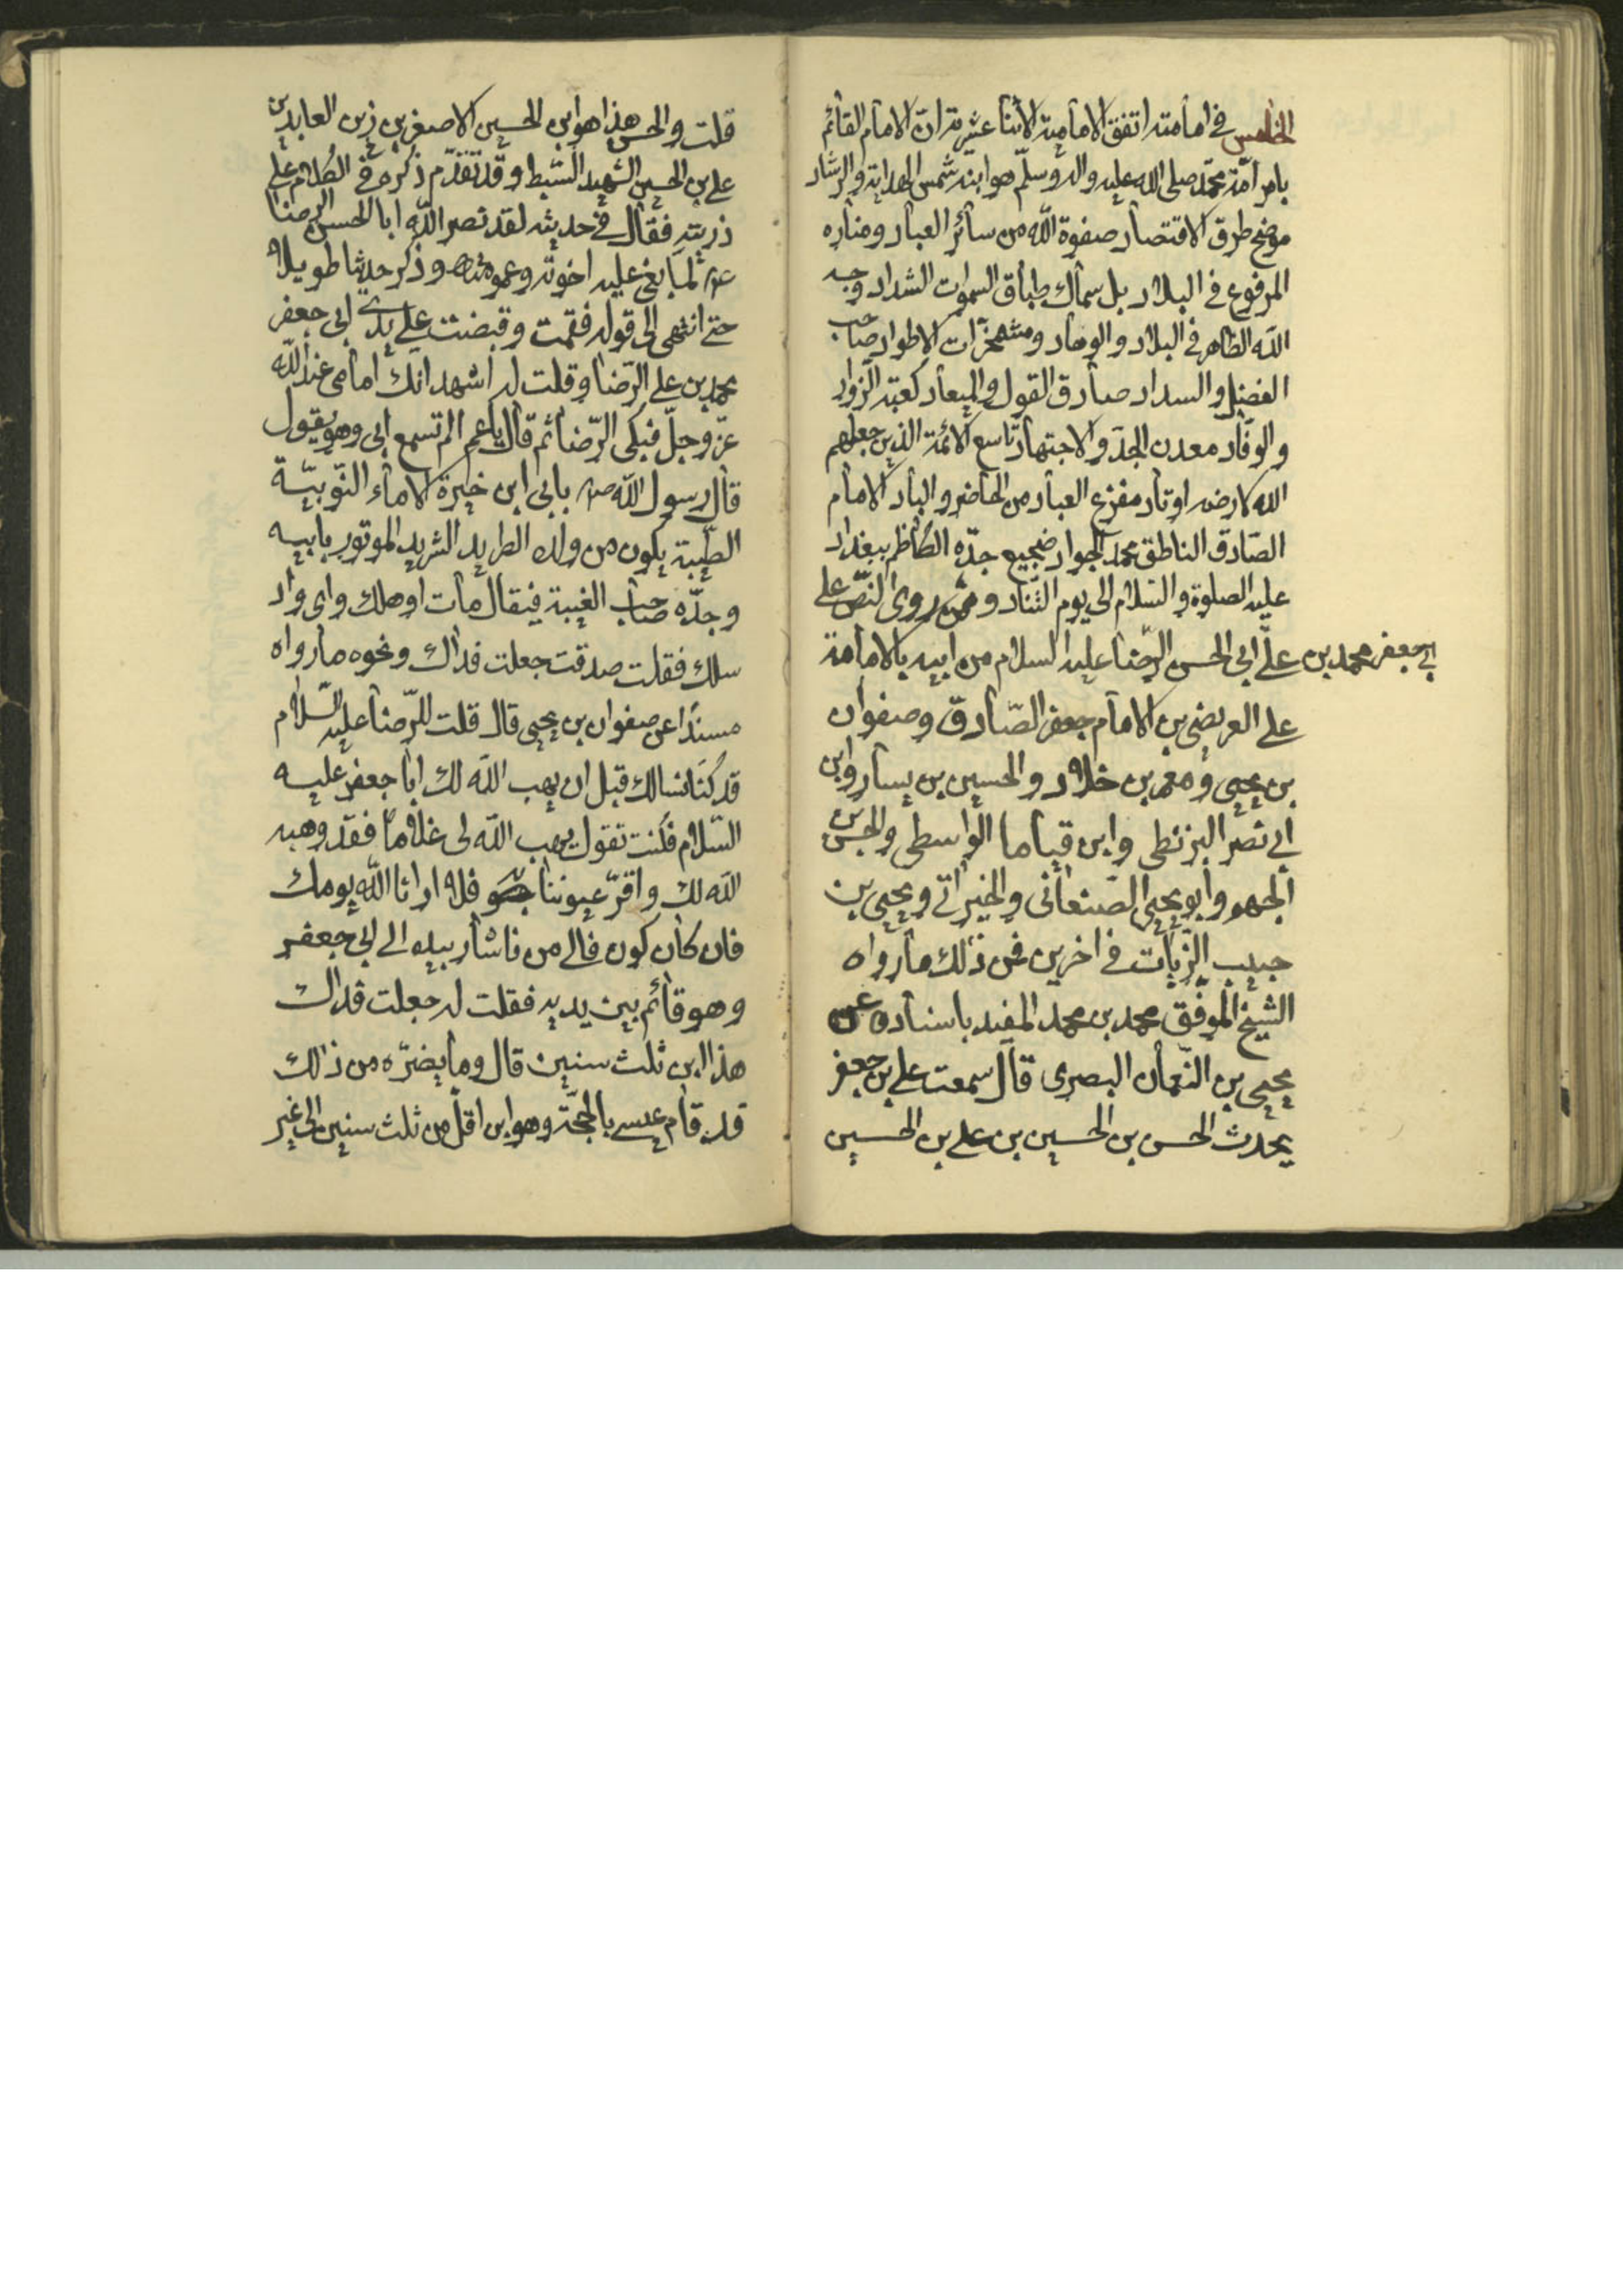 الخامس في امامته اتفق الامامية الاثنا عشرية ان الامام القائم
بامر امّة محمّد صلى الله عليه واله وسلّم هو ابنه شمس الهداية والرشاد
موضح طرق الاقتصاد صفوة اللّه من سائر العباد ومناره
المرفوع في البلاد بل سماك طباق السموات الشداد وجه
اللّه الظاهر في البلاد والوهاد ومشمخرّات الاطواد صاحب
الفضل والسداد صادق القول والميعاد كعبة الزوار
والوفّاد معدن الجدّ والاجتهاد تاسع الائمة الذين جعلهم
الله لارضه اوتاد مفزع العباد من الحاضر والباد الامام
الصّادق الناطق محمد الجواد ضجيع جدّه الكاظم ببغداد
عليه الصلوة والسّلام الى يوم التّناد وممّن روى النّصّ على
ابي جعفر محمد بن علي ابي الحسن الرّضا عليه السلام من ابيه بالامامة
علي العريضي بن الامام جعفر الصّادق وصفوان
بن يحيى ومعمر بن خلاد والحسين بن يسار وابن
ابي نصر البزنطي وابن قياما الواسطي والحسن بن
الجهم وابو يحيى الصّنعاني والخيراني ويحيى بن
حبيب الزّيات في اخرين فمن ذلك ما رواه
الشيخ الموفّق محمد بن محمد المفيد باسناده عن
يحيى بن النّعمان البصرى قال سمعت علي بن جعفر
يحدث الحسن بن الحسين بن علي بن الحسين
قلت والحسن هذا هو ابن الحسين الاصغر بن زين العابدين
علي بن الحسين الشهيد السّبط وقد تقدّم ذكره في الكلام على
ذريته فقال في حديثه لقد نصر اللّه ابا الحسن الرضا
ع لما بغى عليه اخوته وعمومته وذكر حديثا طويلا
حتى انتهى الى قوله فقمت وقبضت على يدي ابى جعفر
محمد بن علي الرّضا وقلت له اشهد انك امامى عند اللّه
عزّ وجلّ فبكى الرّضا ثم قال يا عم الم تسمع ابى وهو يقول
قال رسول اللّه ص بابى ابن خيرة الاماء النّوبيّة
الطّيبة يكون من ولده الطريد الشريد الموتور بابيه
وجدّه صاحب الغيبة فيقال مات او هلك واى واد
سلك فقلت صدقت جعلت فداك ونحوه ما رواه
مسندًا عن صفوان بن يحيى قال قلت للرّضا عليه السّلام
قد كنّا نسالك قبل ان يهب اللّه لك ابا جعفر عليه
السّلام فكنت تقول يهب اللّه لى غلامًا فقد وهبه
اللّه لك واقرّ عيوننا به فلا ارانا اللّه يومك
فان كان كون فالى من فاشار بيده الى ابي جعفر
وهو قائم بين يديه فقلت له جعلت فداك
هذا ابن ثلث سنين قال وما يضرّه من ذلك
قد قام عيسى بالحجّة وهو ابن اقل من ثلث سنين الى غير